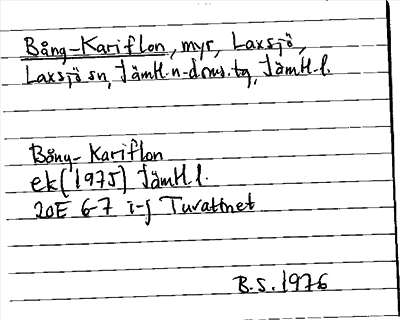 Bång-Kariflon, myr, Laxsjö,
Laxsjö sn, Jämtl. n-doms. tg, Jämtl. l.
Bång-Kariflon
ek (1975) Jämtl. l.
20E 6-7 i-j Tuvattnet
B.S. 1976